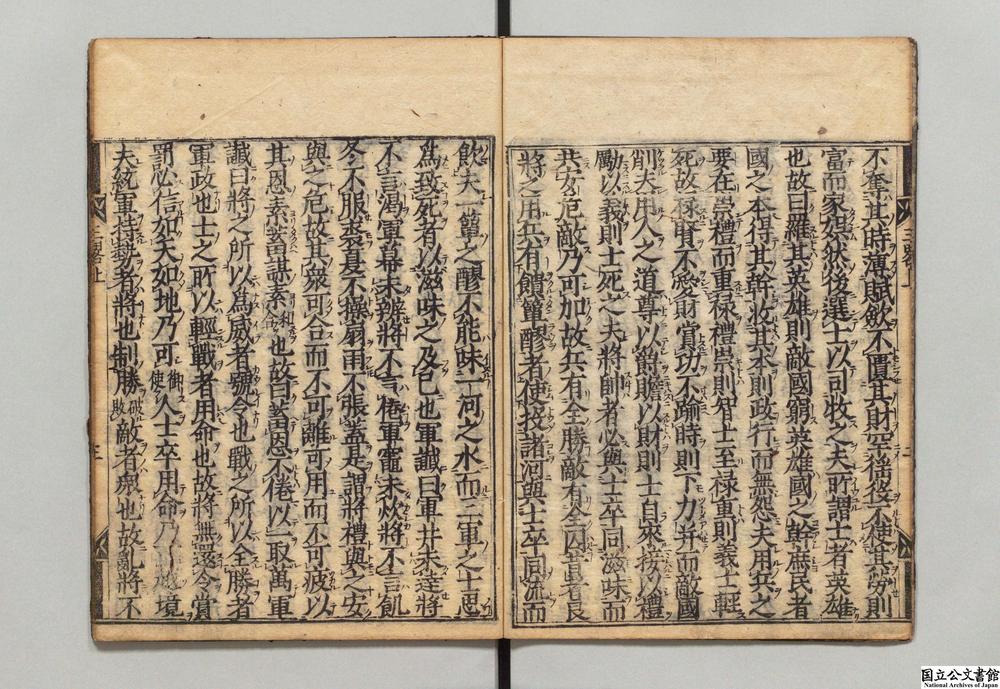 不奪其時薄賦歛不匱其財罕徭役不使其勞則
富而家娯然後選士以司牧之夫所謂士者英雄
也故曰羅其英雄則敵國窮英雄國之幹庶民者
國之本得其幹收其本則政行而無怨夫用兵之
要在崇禮而重禄禮崇則智士至禄重則義士輕
死故禄賢不愛財賞功不踰時則下力并而敵國
削夫用人之道尊以爵贍以財則士自來接以禮
勵以義則士死之夫將帥者必與士卒同滋味而
共安危敵乃可加故兵有全勝敵有全因昔者良
將之用兵有饋簞醪者使投諸河與士卒同流而
飲夫一簞之醪不能味一河之水而三軍之士思
爲致死者以滋味之及已也軍讖曰軍井未達將
不言渴軍幕未辨將不言倦軍竈未炊將不言飢
冬不服裘夏不操扇雨不張蓋是謂將禮與之安
與之危故其衆可合而不可離可用而不可疲以
其恩素蓄謀素和也故曰蓄恩不倦以一取萬軍
讖曰將之所以爲威者號令也戰之所以全勝者
軍政也士之所以輕戰者用命也故將無還令賞
罰必信如天如地乃可御使人士卒用命乃越境
夫統軍持勢者將也制勝破敗敵者衆也故亂將不
国立公文書館
National Archives of Japan